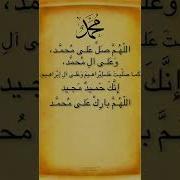 محمد
اللَّهُمَّ صَلِّ عَلَى مُحَمَّد،
وَعَلَى آلِ مُحَمَّد،
كَمَا صَلَّيْتَ عَلَىإِبْرَاهِيمَ وَعَلَى آلِ إِبْرَاهِيمَ
إِنَّكَ حَمِيدٌ مَجِيد
اللَّهُمَّ بَارِكْ عَلَى مُحَمَّد